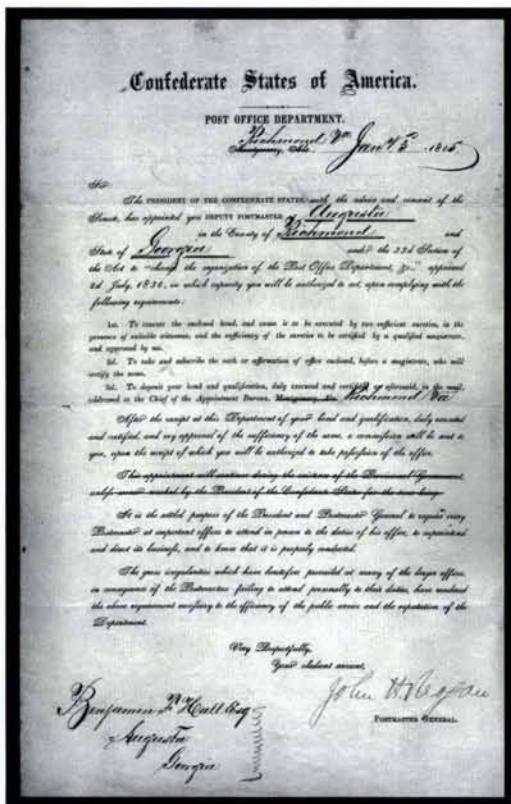 Confederate States of America.
POST OFFICE DEPARTMENT.
Richmond Va Jany 5 1865
Montgomery, Ala.
Sir:
The PRESIDENT OF THE CONFEDERATE STATES, with the advice and consent of the
Senate, has appointed you DEPUTY POSTMASTER of Augusta
in the County of Richmond and
State of Georgia under the 33d Section of
the Act to "change the organization of the Post Office Department, &c." approved
2d July, 1836, in which capacity you will be authorized to act, upon complying with the
following requirements:
1st. To execute the enclosed bond, and cause it to be executed by two sufficient sureties, in the
presence of suitable witnesses, and the sufficiency of the sureties to be certified by a qualified magistrate,
and approved by me.
2d. To take and subscribe the oath or affirmation of office enclosed, before a magistrate, who will
certify the same.
3d. To deposit your bond and qualification, duly executed and certified as aforesaid, in the mail,
addressed to the Chief of the Appointment Bureau, Montgomery, Ala. Richmond Va
After the receipt at this Department of your bond and qualification, duly executed
and certified, and my approval of the sufficiency of the same, a commission will be sent to
you, upon the receipt of which you will be authorized to take possession of the office.
This appointment will continue during the existence of the Provisional Government,
unless sooner revoked by the President of the Confederate States for the time being.
It is the settled purpose of the President and Postmaster General to require every
Postmaster at important offices to attend in person to the duties of his office, to superintend
and direct its business, and to know that it is properly conducted.
The gross irregularities which have heretofore prevailed at many of the larger offices,
in consequence of the Postmasters failing to attend personally to their duties, have rendered
the above requirement necessary to the efficiency of the public service and the reputation of the
Department.
Very Respectfully,
Your obedient servant,
John H. Reagan
POSTMASTER GENERAL.
Benjamin F. Hall Esq
Augusta
Georgia